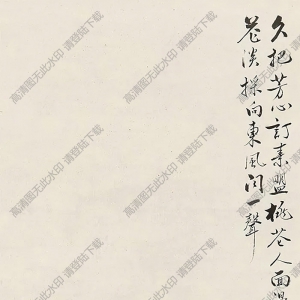 久把芳心訂素盟桃花人面
花淡採向東風問一聲
高清图无此水印
请登陆下载
高清图无此水印
请登陆下载
高清图无此水印
请登陆下载
高清图无此水印
请登陆下载